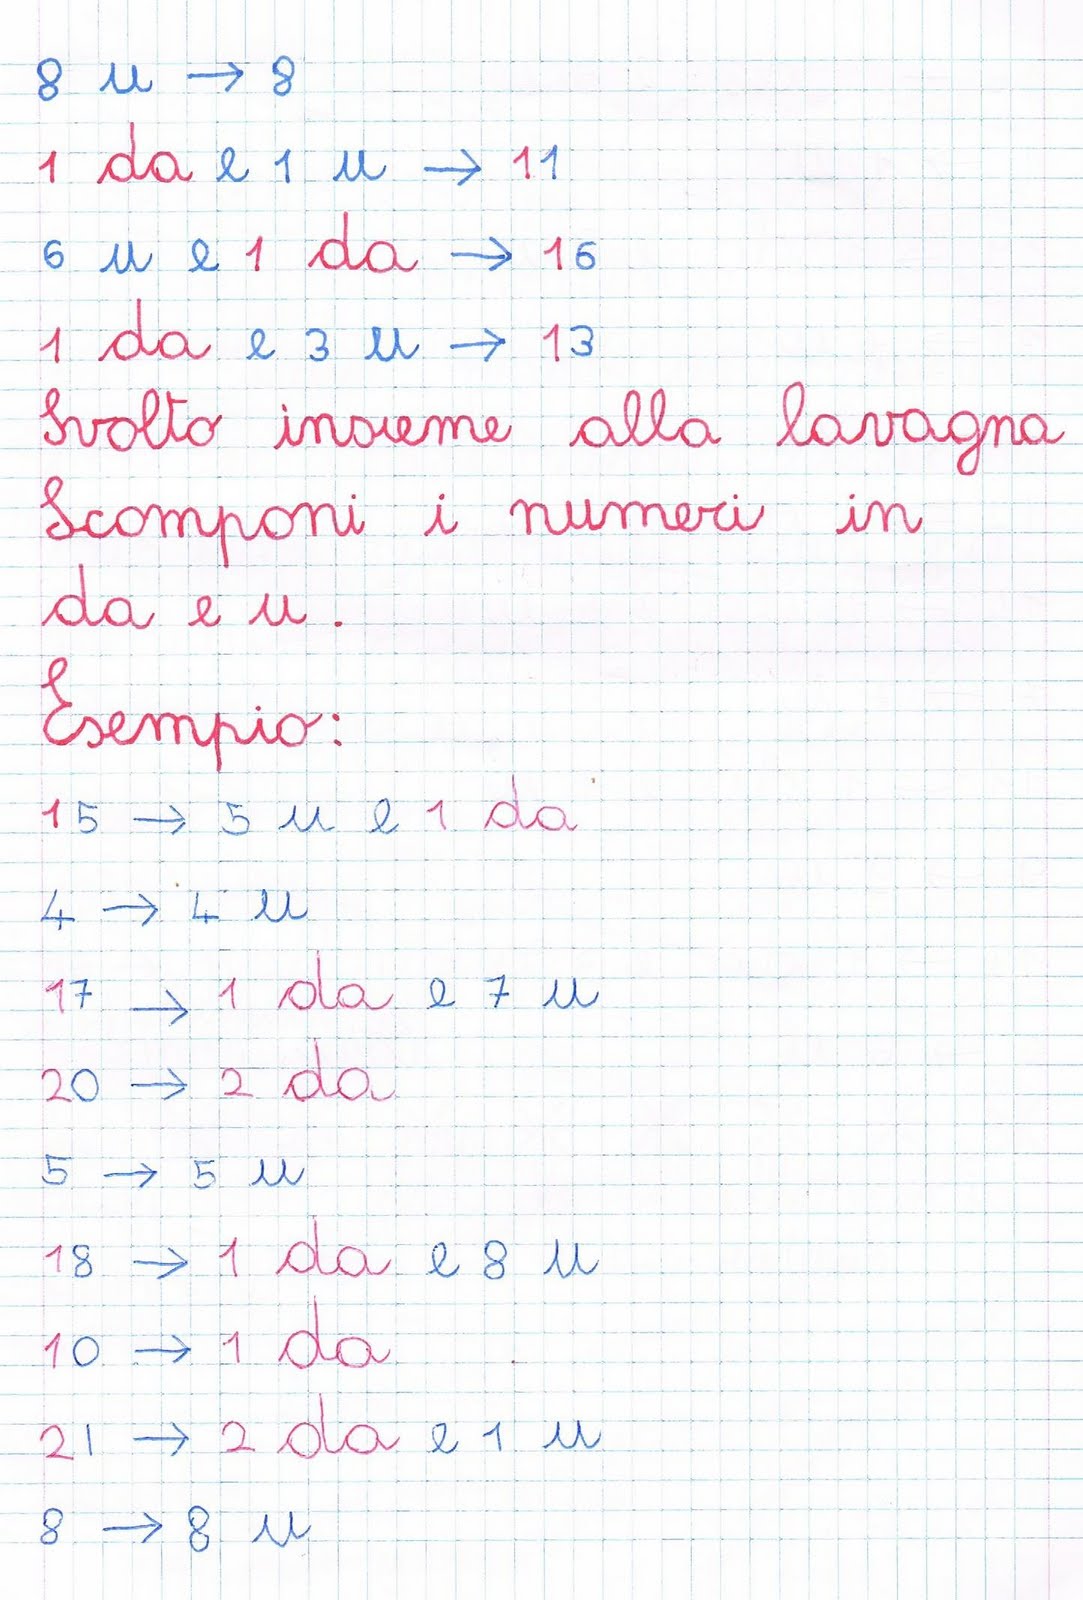 8 u → 8
1 da e 1 u → 11
6 u e 1 da → 16
1 da e 3 u → 13
Svolto insieme alla lavagna
Scomponi i numeri in
da e u.
Esempio:
15 → 5 u e 1 da
4 → 4 u
17 → 1 da e 7 u
20 → 2 da
5 → 5 u
18 → 1 da e 8 u
10 → 1 da
21 → 2 da e 1 u
8 → 8 u